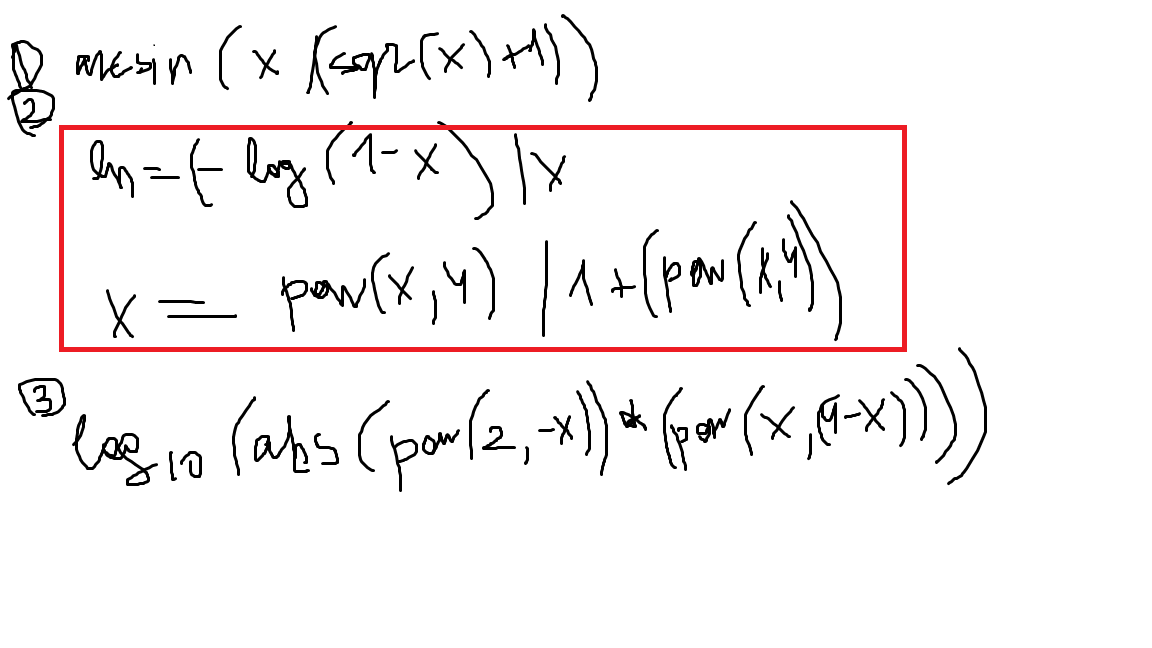 1) arcsin (x /(sqr(x)+1))
2
ln = (- log (1-x)) | x
x = pow(x,4) | 1+(pow(x,4))
3
log10 (abs(pow(2,-x))*(pow(x,(4-x))))